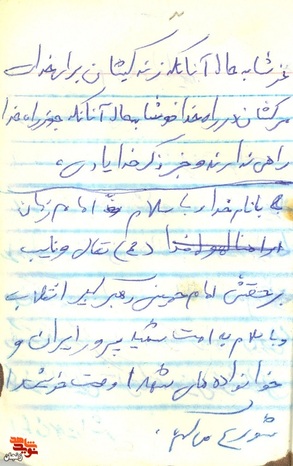 خوشا به حال آنانکه زندگیشان برای خدا
مرگشان در راه خدا خوشا به حال آنانکه جز راه خدا
راهی ندارند و جز ذکر خدا یادی.
با نام خدا و با سلام به امام زمان
(عج) تعالی و نایب
بر حقش امام خمینی رهبر کبیر انقلاب
و با سلام به امت شهید پرور ایران و
خانواده های شهدا وصیت خود را
شروع می کنم.